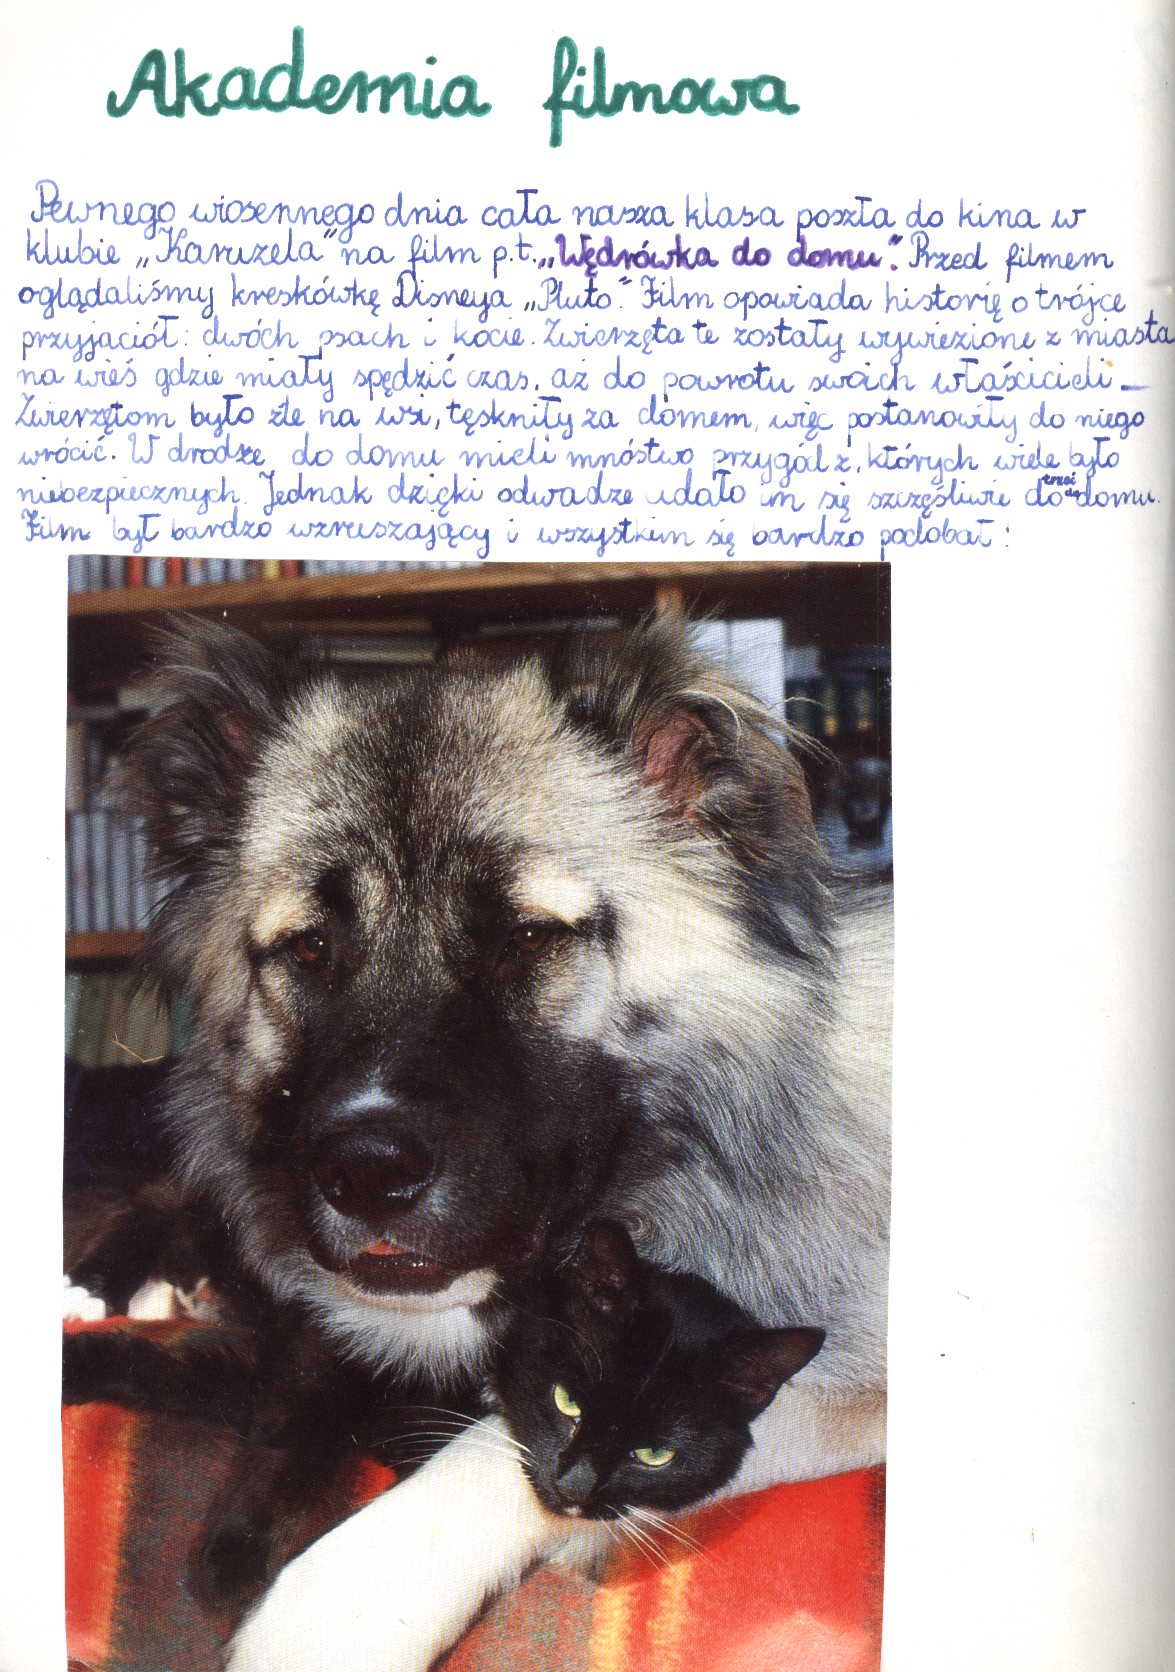 Akademia filmowa
Pewnego wiosennego dnia cała nasza klasa poszła do kina w
klubie „Karuzela" na film p.t. „Wędrówka do domu". Przed filmem
oglądaliśmy kreskówkę Disneya „Pluto". Film opowiada historię o trójce
przyjaciół: dwóch psach i kocie. Zwierzęta te zostały wywiezione z miasta
na wieś gdzie miały spędzić czas, aż do powrotu swoich właścicieli.
Zwierzętom było źle na wsi, tęskniły za domem, więc postanowiły do niego
wrócić. W drodze do domu mieli mnóstwo przygód z, których wiele było
niebezpiecznych. Jednak dzięki odwadze udało im się szczęśliwie do domu.
Film był bardzo wzruszający i wszystkim się bardzo podobał!